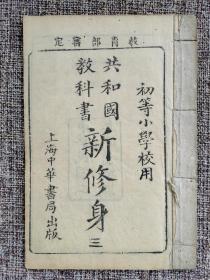 教育部審定
初等小學校用
共和國
教科書
新修身
三
上海中華書局出版